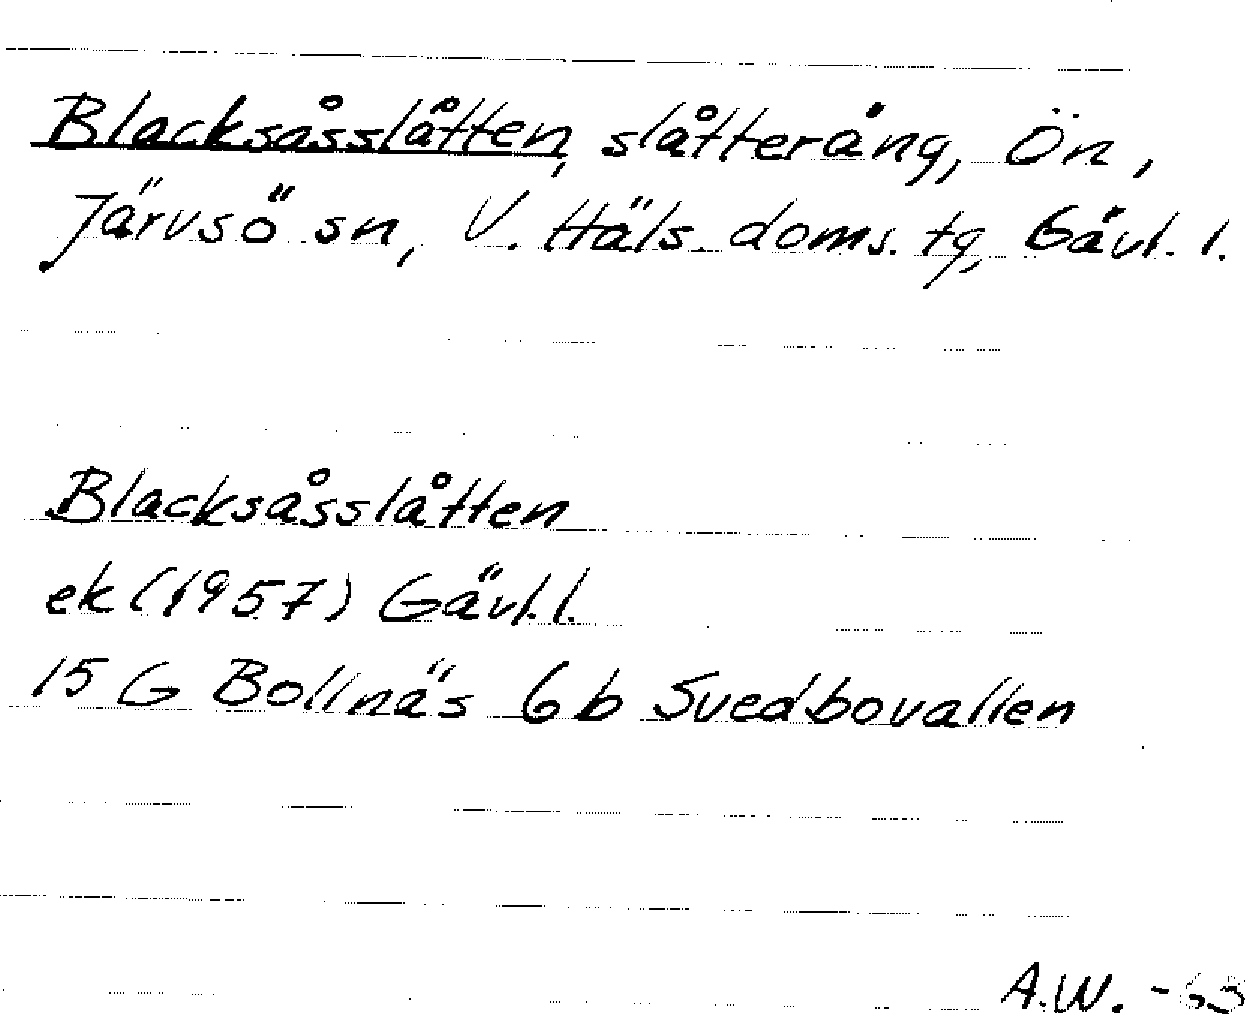 Blacksåsslåtten, slåtteräng, Ön,
Järvsö sn, V. Häls. doms. tg, Gävl. l.
Blacksåsslåtten
ek (1957) Gävl. l.
15 G Bollnäs 6 b Svedbovallen
A.W. -63